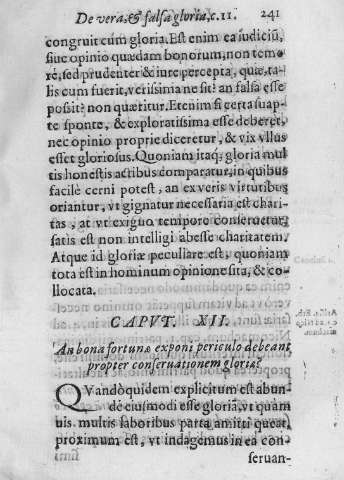 De vera, & falsa gloria, c.11. 241
congruit cum gloria. Est enim ea iudiciũ,
siue opinio quædam bonorum, non teme
rè, sed prudenter & iure percepta, quæ, ta-
lis cum fuerit, verissima ne sit? an falsa esse
possit? non quæritur. Etenim si certa suap-
te sponte, & exploratissima esse deberet,
nec opinio proprie diceretur, & vix vllus
esset gloriosus. Quoniam itaq; gloria mul
tis honestis actibus comparatur, in quibus
facile cerni potest, an ex veris virtutibus
oriantur, vt gignatur necessaria est chari-
tas, at vt exiguo tempore conseruetur,
satis est non intelligi abesse charitatem.
Atque id gloriæ peculiare est, quoniam
tota est in hominum opinione sita, & co-
llocata.
CAPVT. XII.
An bona fortunæ exponi periculo debeant
propter conseruationem gloriæ?
QVandòquidem explicitum est abun
dè eiusmodi esse gloriã, vt quam
uis multis laboribus parta amitti queat,
proximum est, vt indagemus in ea con-
seruan-